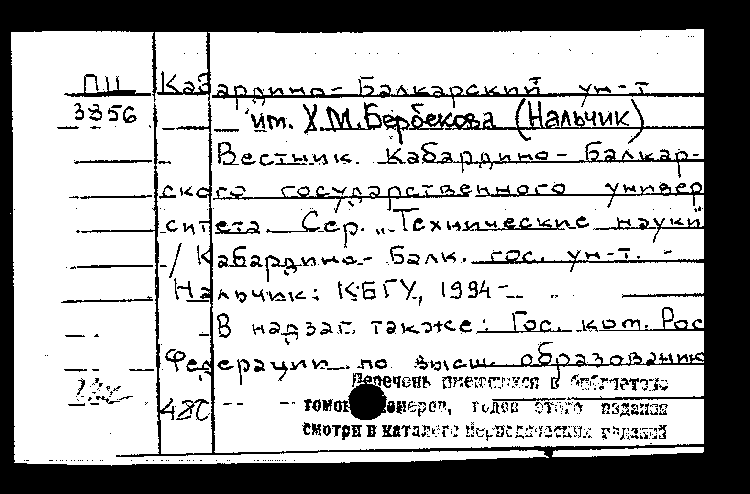 ПШ Кабардино-Балкарский ун-т
3856 им. Х.М.Бербекова (Нальчик)
Вестник. Кабардино-Балкар-
ского государственного универ
ситета. Сер. „Технические науки
/ Кабардино-Балк. гос. ун-т. -
Нальчик: КБГУ, 1994-
В надзаг. также: Гос. ком. Рос
Федерации по высш. образованию
Перечень имеющихся в библиотеке
480 томов номеров, годов этого издания
смотри в каталоге периодических изданий